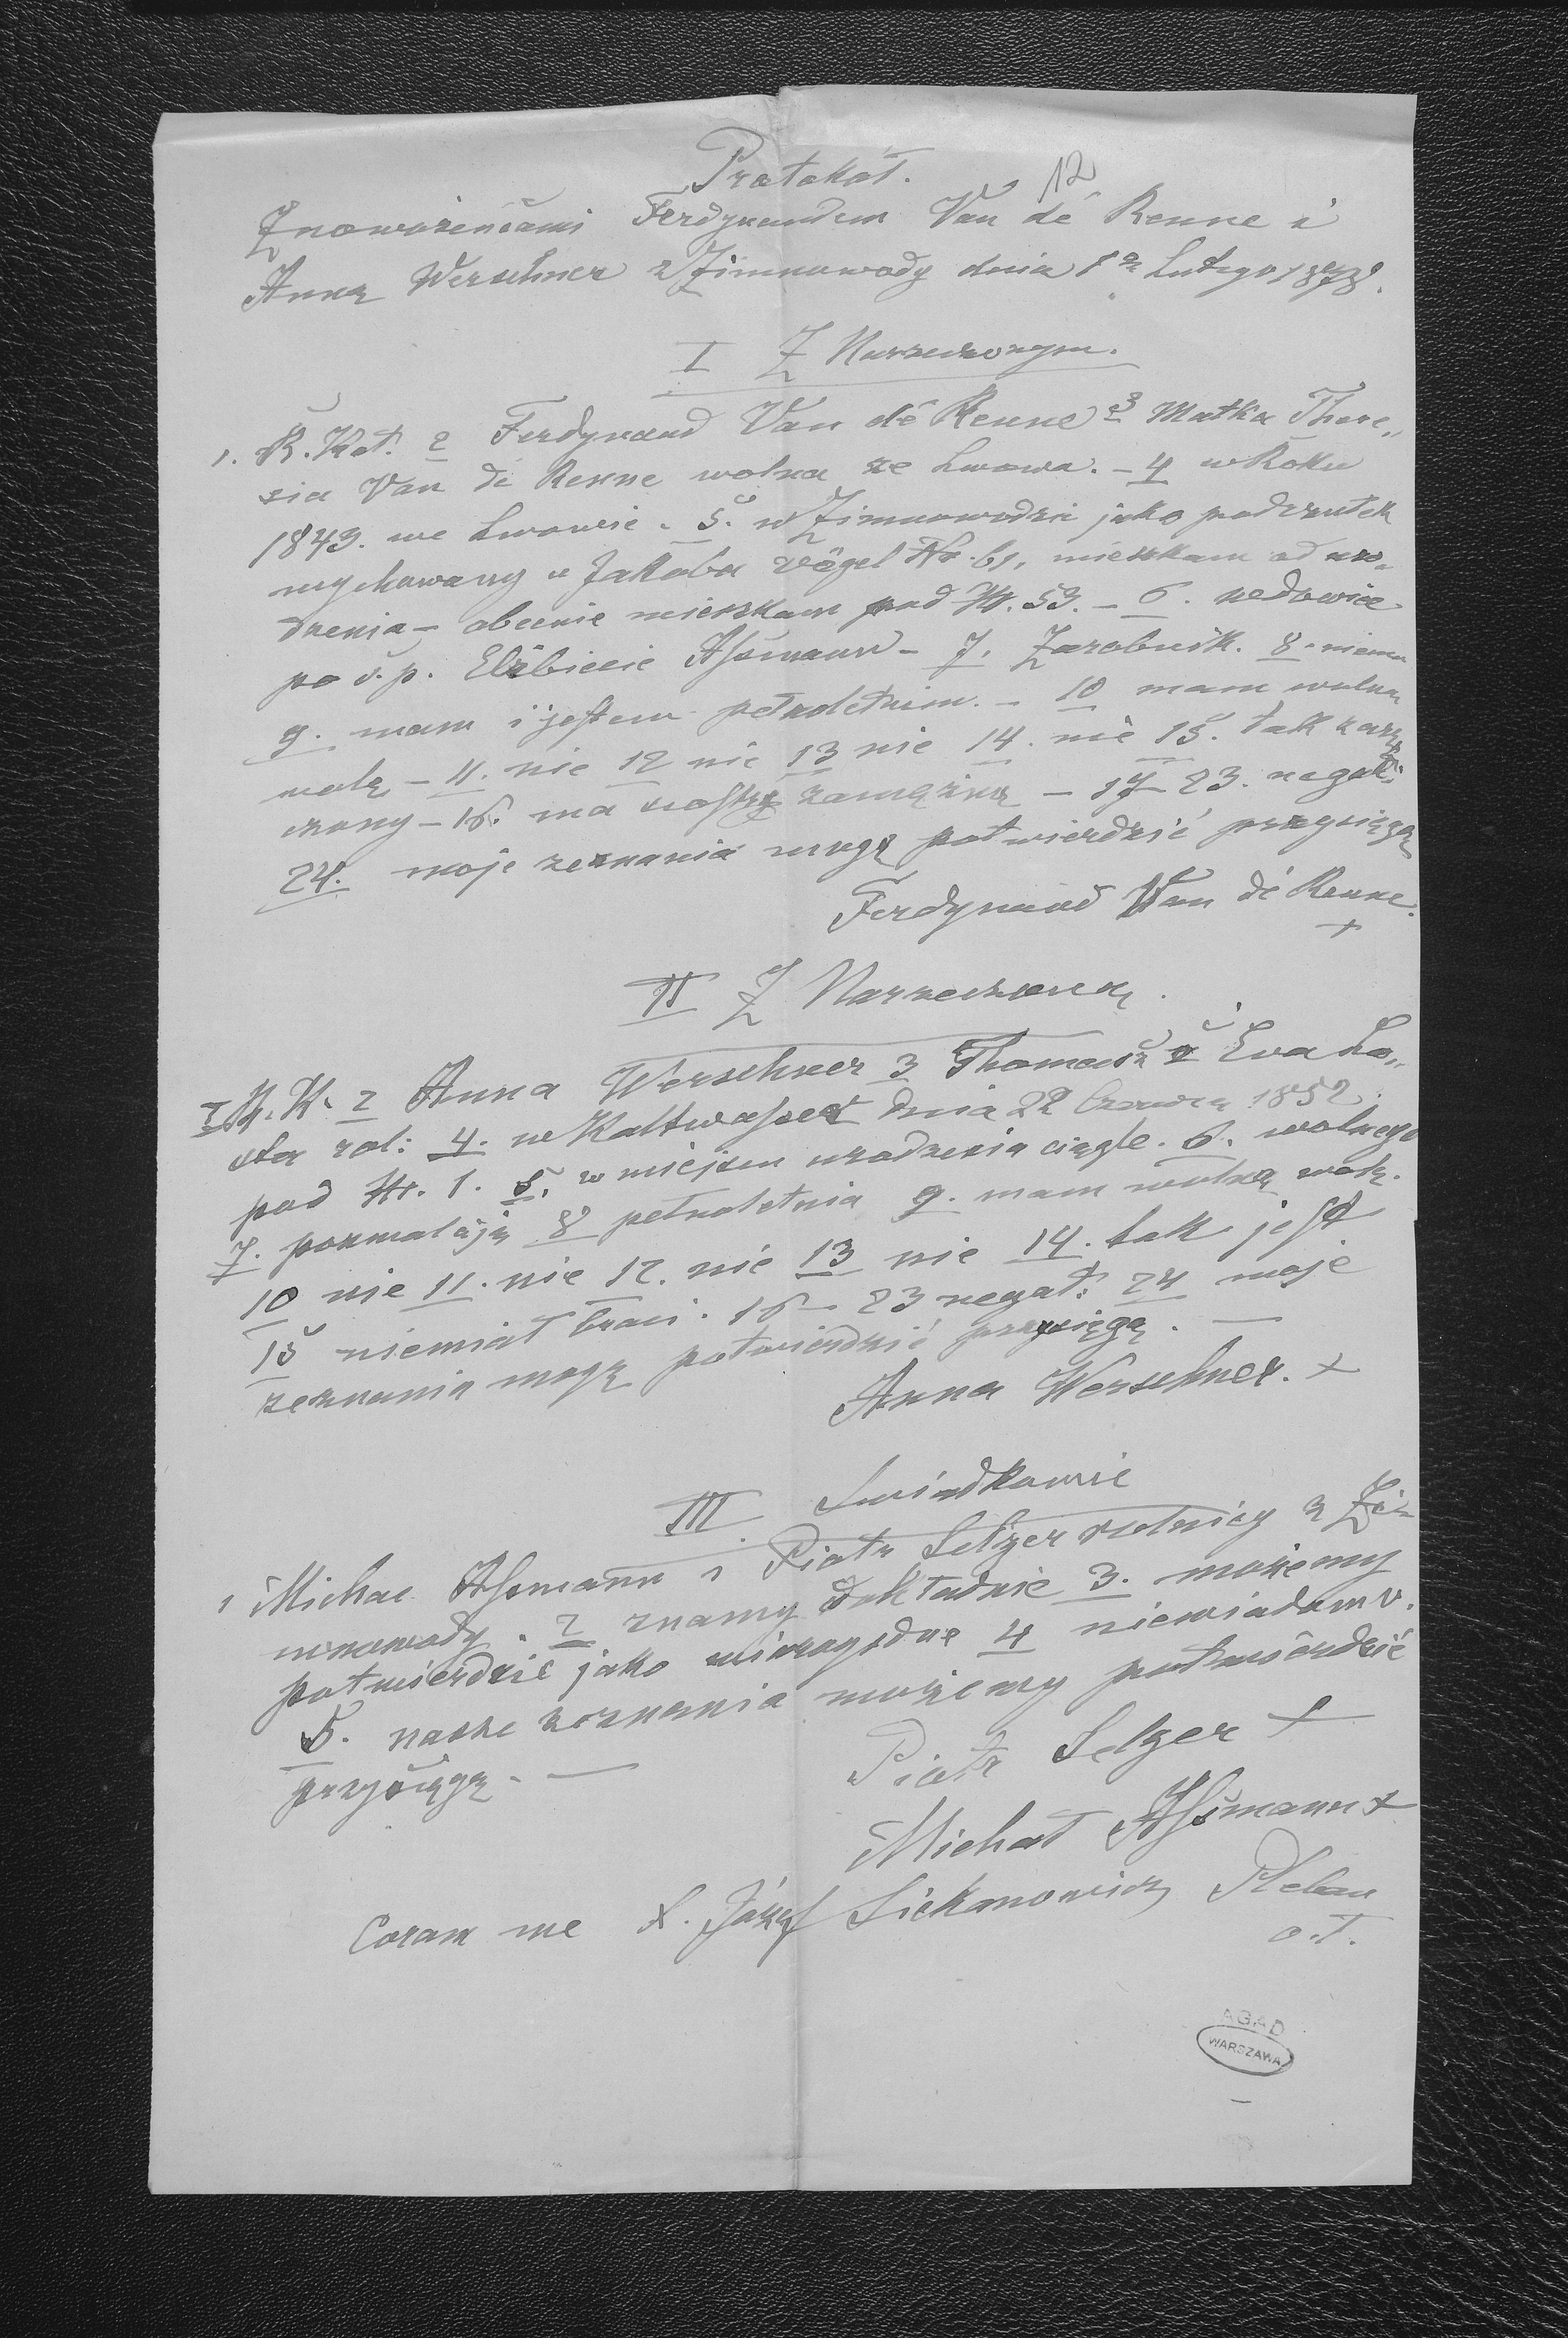 Protokół.
12
Z nowożeńcami Ferdynandem Van dé Renne i
Anną Werschner z Zimnowody dnia 1go Lutego 1878.
I Z Narzeczonym.
1. R. Kat. 2 Ferdynand Van dé Renne 3 Matka There„
sia Van dé Renne wolna ze Lwowa. – 4 w Roku
1843. we Lwowie. 5. w Zimnowodzie jako podrzutek
wychowany u Jakoba Vögel No. 61, mieszkam od uro„
dzenia – obecnie mieszkam pod Nr. 53. – 6. wdowiec
po ś. p. Elżbiecie Aſsmann – 7. Zarobnik. 8. niema
9. mam i jeſtem pełnoletnim. – 10 mam wolną
wolę – 11. nie 12 nie 13 nie 14. nie 15. tak
– 16. ma zamężną – 17 – 23. negat:
24. moje zeznania mogę potwierdzić przysięgą
Ferdynand Van dé Renne.
+
II Z Narzeczoną.
1 R. K. 2 Anna Werschner 3 Thomasz i Eva
rol: 4. w Kaltwaſser dnia 22 Czerwca 1852.
pod Nr. 1. 5. w miejscu urodzenia ciągle. 6. wolnego
7. pozwalają 8 pełnoletnia 9. mam wolną wolę.
10 nie 11. nie 12. nie 13 nie 14. tak jeſt
15 niemiał braci. 16 – 23 negat: 24 moje
zeznania mogę potwierdzić przysięgą. —
Anna Werschner. +
III Świadkowie
1 Michał Aſsmann i Piotr Selzer rolnicy z Zi„
mnowody. 2 znamy dokładnie 3. możemy
potwierdzić jako wiarygodne 4 niewiadomo.
5. nasze zeznania możemy potwierdzić
przysięgą. —
Piotr Selzer +
Michał Aſsmann +
Coram me X. Józef Siekanowicz Pleban
o. ł.
AGAD
WARSZAWA